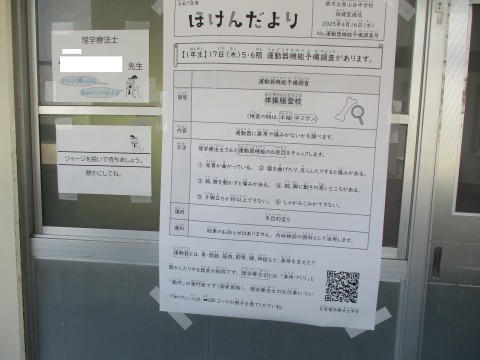 理学療法士
先生
ジャージを脱いで待ちましょう。
静かにしてね。
ほけんだより
2025年4月16日(水)
No.運動器機能予備調査号
【1年生】17日(木)5・6限 運動器機能予備調査があります。
運動器機能予備調査
服装
体操服登校
(検査の時は、半袖・半ズボン)
内容
運動器に異常や痛みがないかを調べます。
方法
理学療法士さんと運動器機能の6項目をチェックします。
① 背骨が曲がっている。 ② 腰を曲げたり、反らしたりすると痛みがある。
③ 腕、脚を動かすと痛みがある。 ④ 腕、脚に動きの悪いところがある。
⑤ 片脚立ちが5秒以上できない。 ⑥ しゃがみこみができない。
場所
多目的室5
通知
結果のお知らせはありません。内科検診の資料として活用します。
運動器とは、骨・関節、筋肉、靭帯、腱、神経など、身体を支えたり
動かしたりする器官の総称です。理学療法士とは、「身体づくり」と
「動作」の専門家です(国家資格)。理学療法士のお仕事につい
て知りたい人は、➡QRコードの冊子を見てくださいね。
日本理学療法士学会